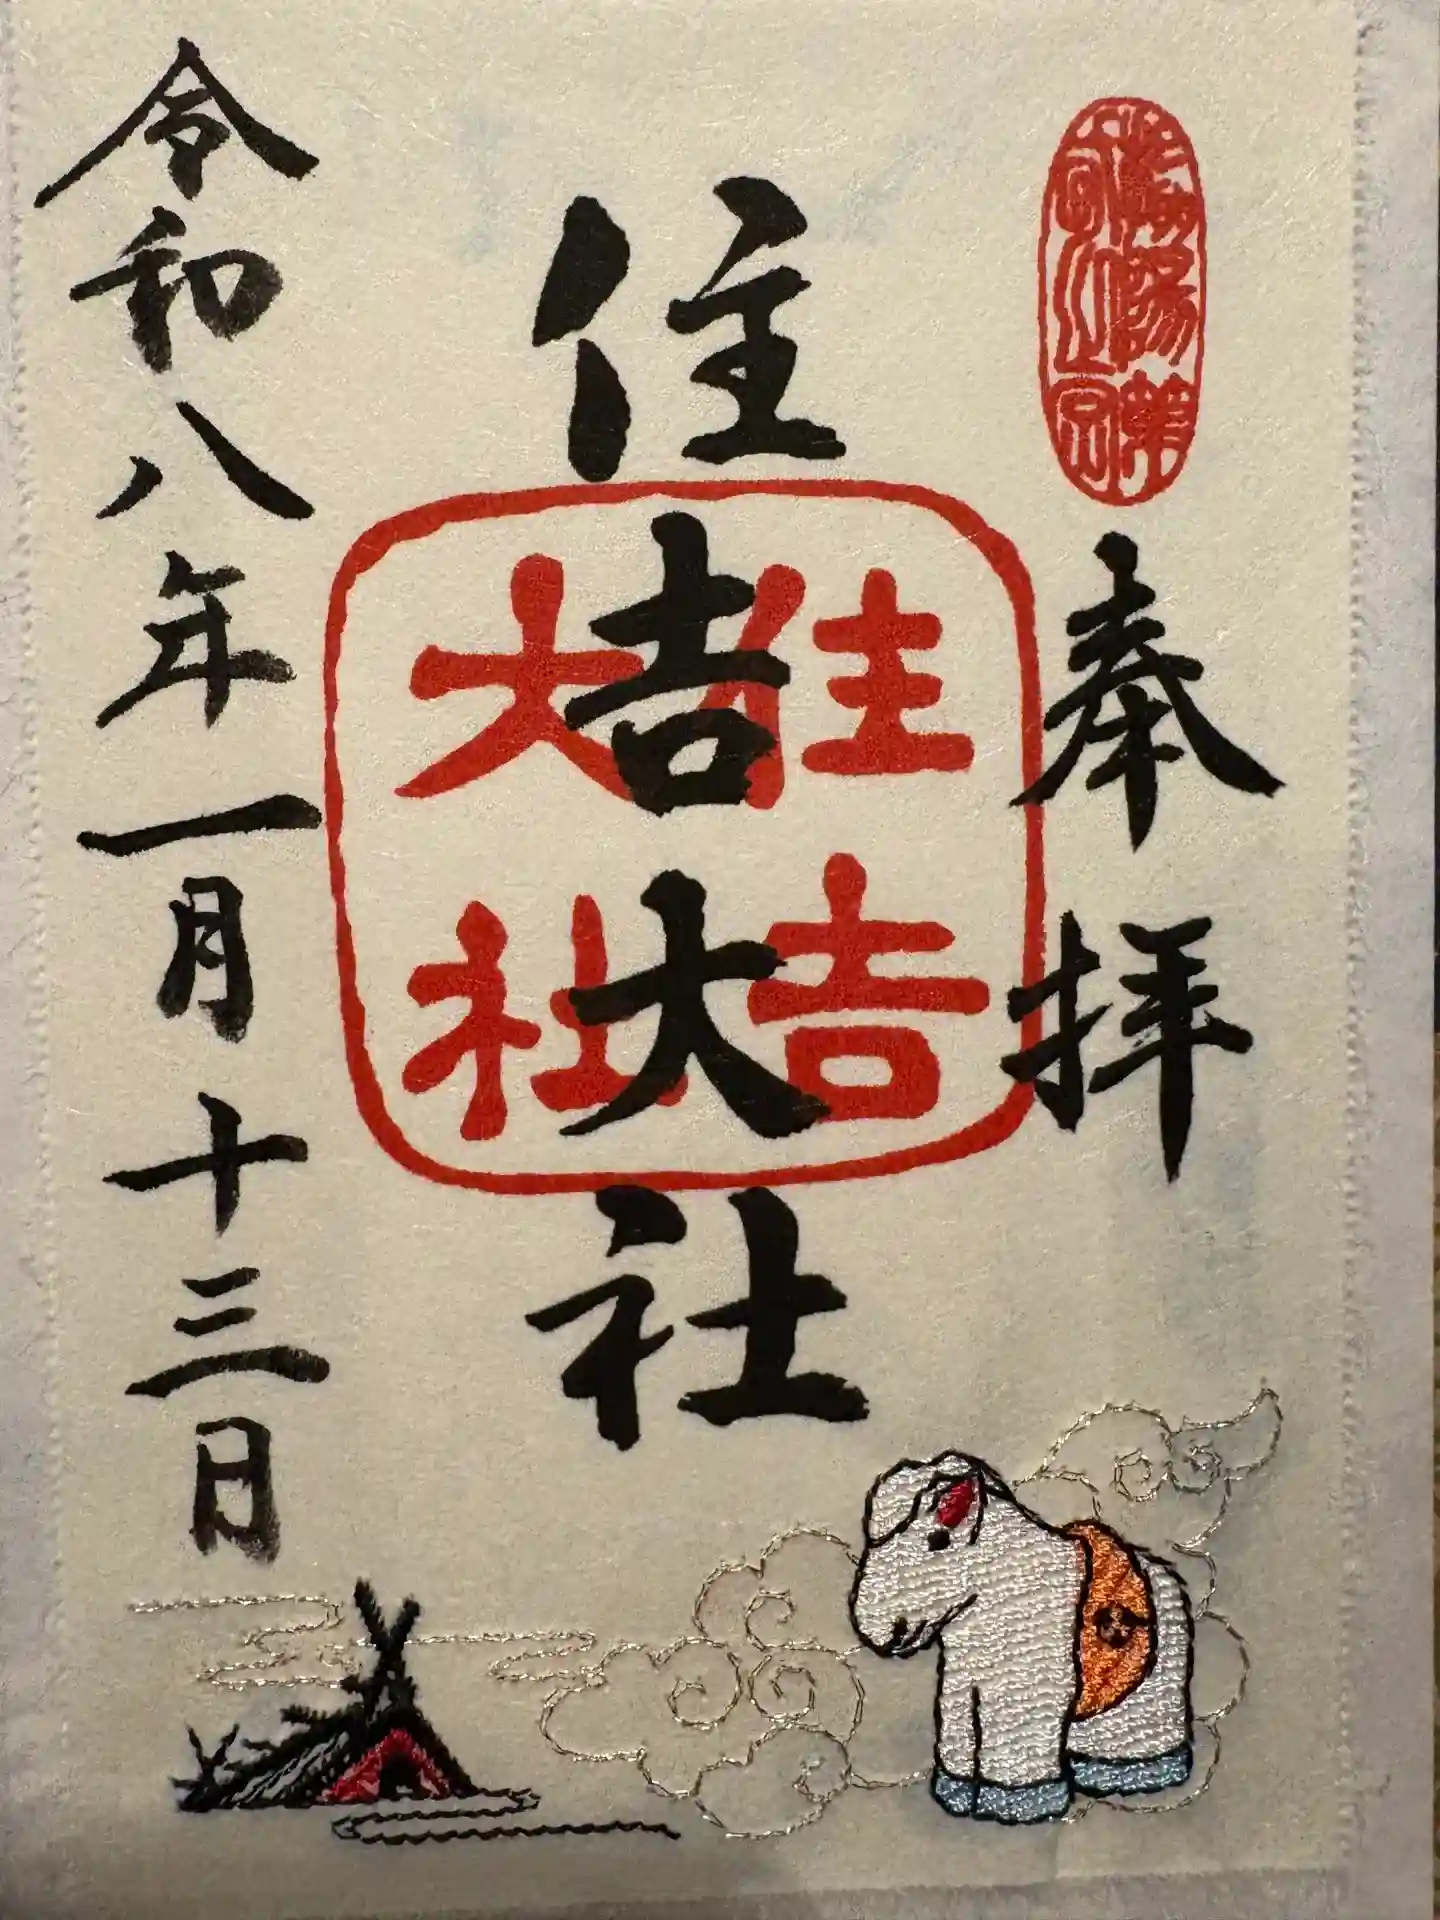 奉拝
住吉大社
住吉
大社
令和八年一月十三日